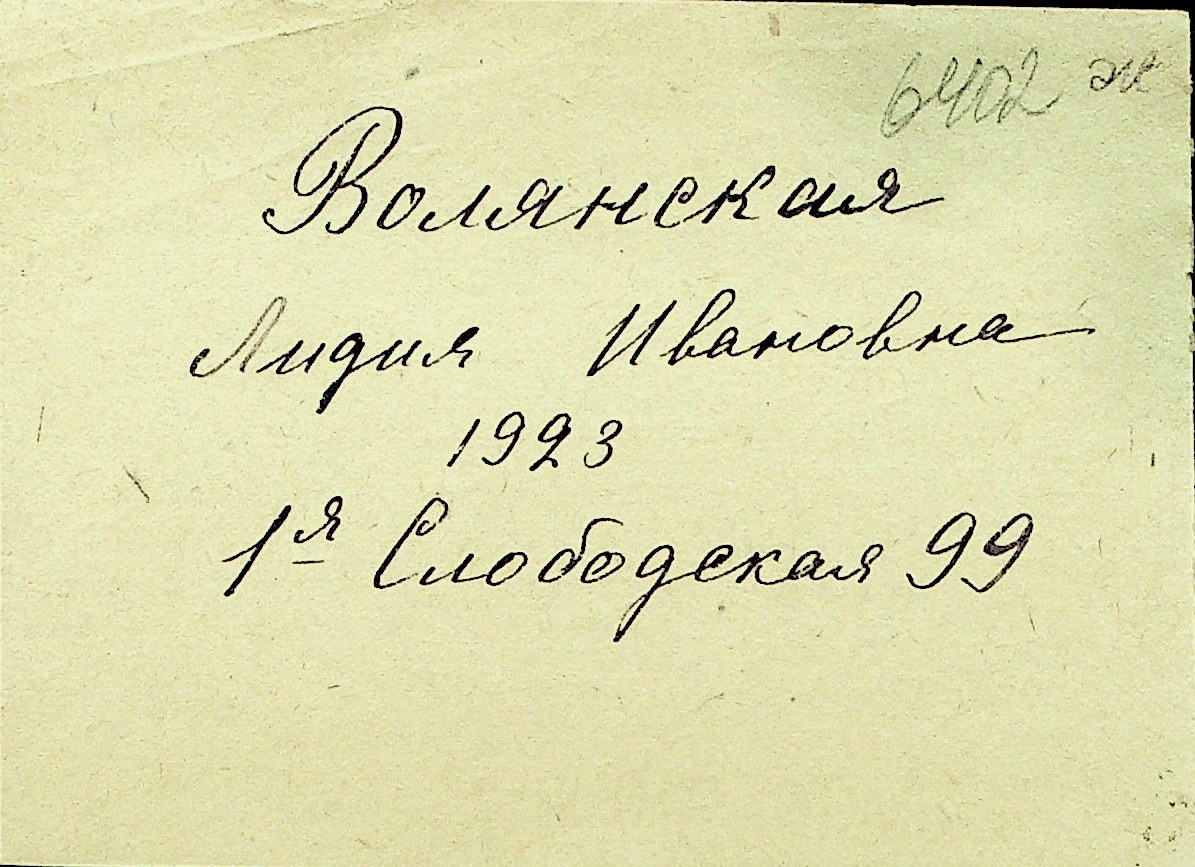 6402 ж
Волянская
Лидия Ивановна
1923
1я Слободская 99